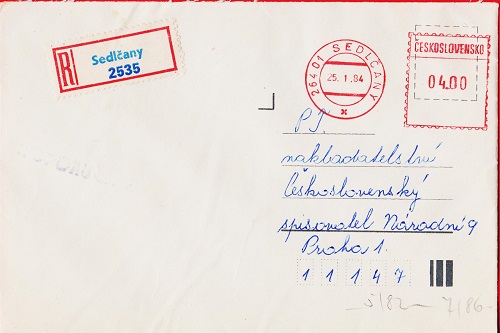 R
Sedlčany
2535
26401 SEDLČANY
25.1.84
ČESKOSLOVENSKO
04.00
PT.
nakladatelství
československý
spisovatel Národní 9
Praha 1.
1 1 1 4 7
5/82 - 7/86